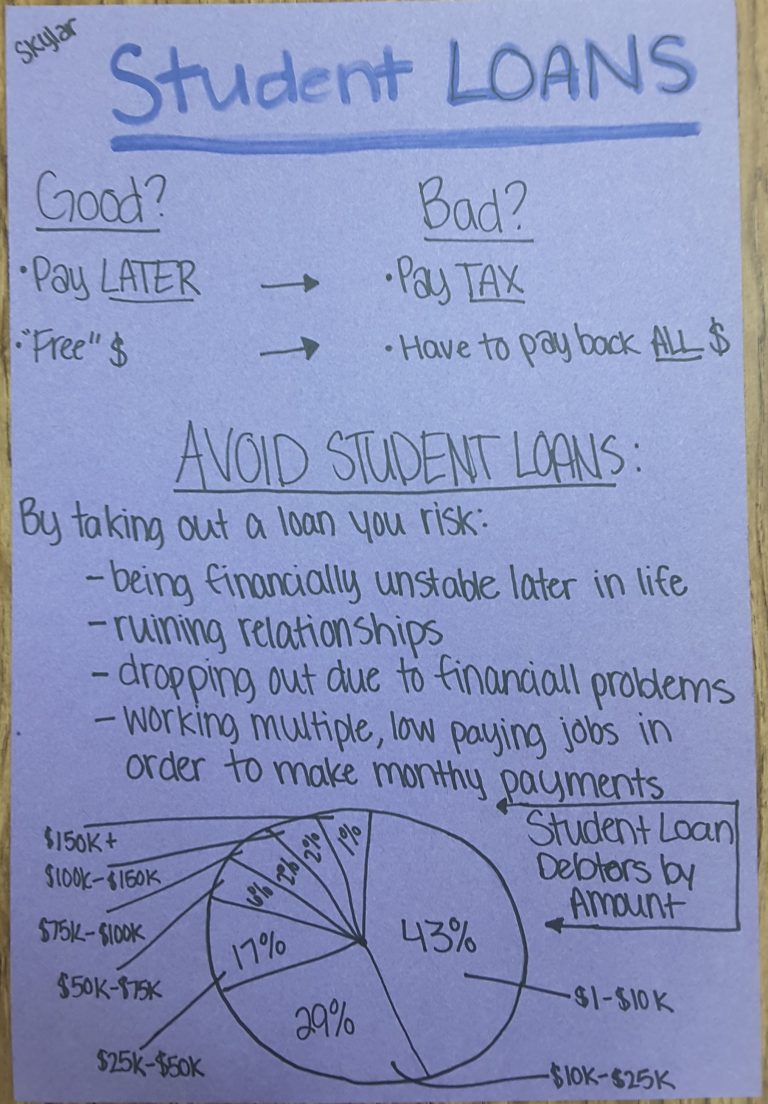 Skylar
Student LOANS
Good?
Bad?
• Pay LATER → • Pay TAX
• "Free" $ → • Have to pay back ALL $
AVOID STUDENT LOANS:
By taking out a loan you risk:
- being financially unstable later in life
- ruining relationships
- dropping out due to financiall problems
- working multiple, low paying jobs in
order to make monthy payments
Student Loan
Debtors by
Amount
$150K+
$100K-$150K
$75K-$100K
$50K-$75K
$25K-$50K
6%
2%
2%
1%
17%
43%
29%
$1-$10K
$10K-$25K